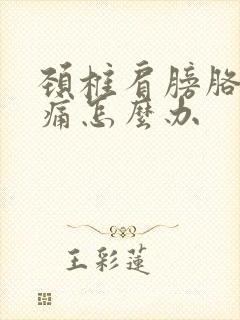 頚柱肩膀胳
痛怎麼办
王彩蓮